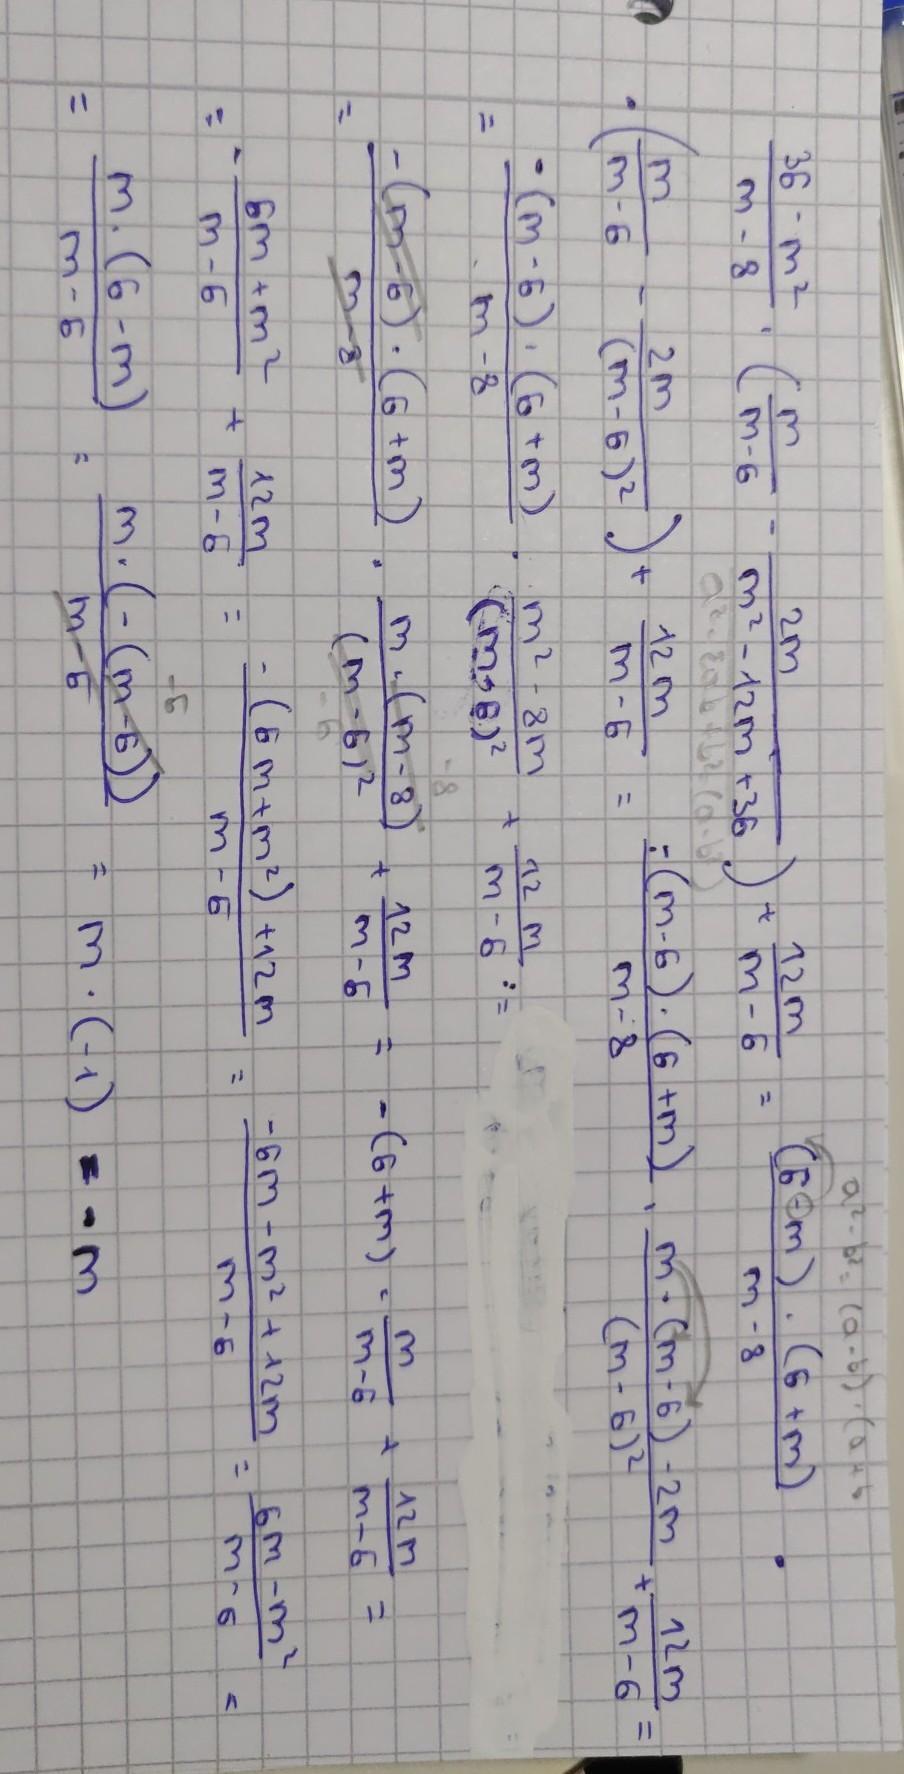 a² - b² = (a-b)·(a+b
36 - m² / m - 8 · ( m / m-6 - 2m / m² - 12m + 36 ) + 12m / m - 6 = (6-m) · (6+m) / m - 8 ·
a² - 2ab + b² (a-b)
· ( m / m-6 - 2m / (m-6)² ) + 12m / m-6 = -(m-6)·(6+m) / m-8 · m·(m-6) - 2m / (m-6)² + 12m / m-6 =
= -(m-6)·(6+m) / m-8 · m² - 8m / (m-6)² + 12m / m-6 =
= -(m-6)·(6+m) / m-8 · m·(m-8) / (m-6)² + 12m / m-6 = -(6+m) · m / m-6 + 12m / m-6 =
= - 6m + m² / m-6 + 12m / m-6 = -(6m + m²) + 12m / m-6 = -6m - m² + 12m / m-6 = 6m - m² / m-6 =
= m·(6-m) / m-6 = m·(-(m-6)) / m-6 = m·(-1) = -m